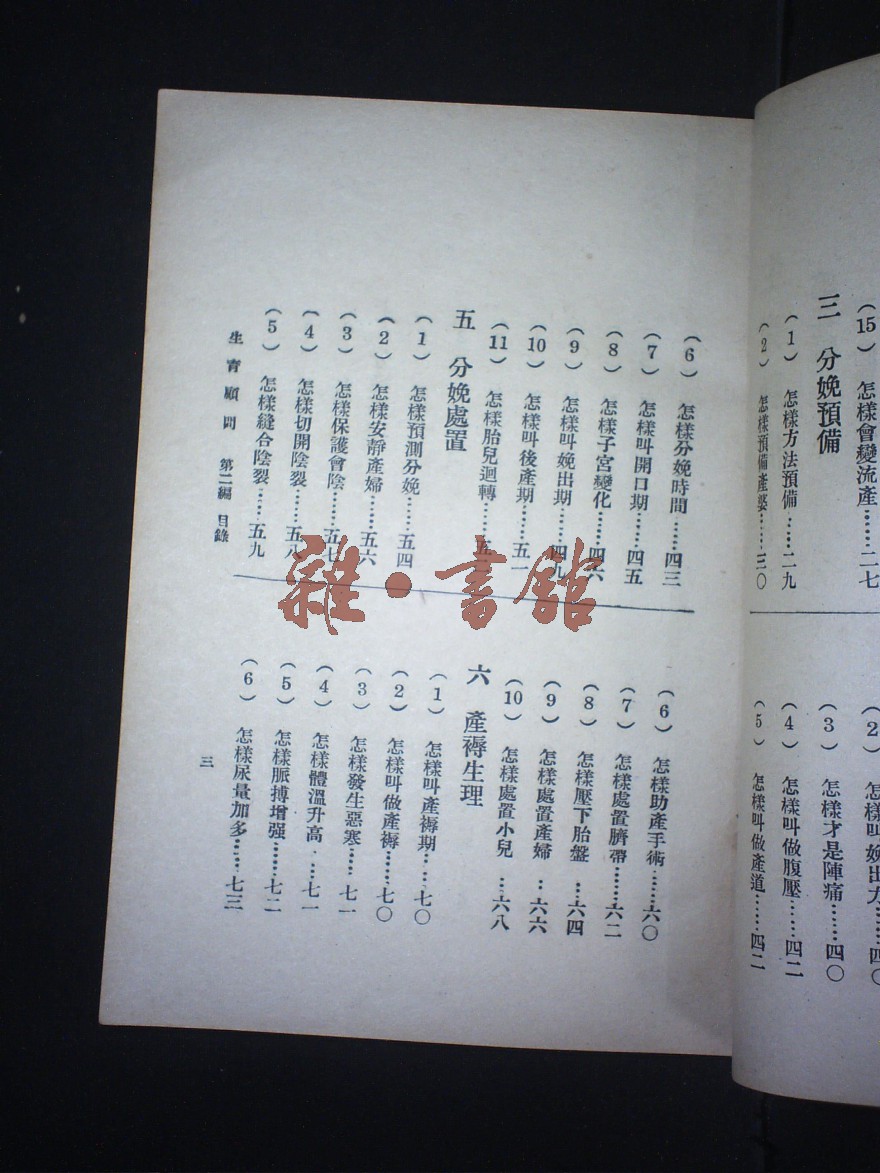 (15) 怎樣會變流產……二七
三 分娩預備
(1) 怎樣方法預備……二九
(2) 怎樣預備產婆……三〇
怎樣叫娩出力……四〇
(3) 怎樣才是陣痛……四〇
(4) 怎樣叫做腹壓……四二
(5) 怎樣叫做產道……四二
(6) 怎樣分娩時間……四三
(7) 怎樣叫開口期……四五
(8) 怎樣子宮變化……四六
(9) 怎樣叫娩出期……四九
(10) 怎樣叫後產期……五一
(11) 怎樣胎兒迴轉……
五 分娩處置
(1) 怎樣預測分娩……五四
(2) 怎樣安靜產婦……五六
(3) 怎樣保護會陰……五七
(4) 怎樣切開陰裂……五八
(5) 怎樣縫合陰裂……五九
(6) 怎樣助產手術……六〇
(7) 怎樣處置臍帶……六二
(8) 怎樣壓下胎盤…六四
(9) 怎樣處置產婦…六六
(10) 怎樣處置小兒…六八
六 產褥生理
(1) 怎樣叫產褥期……七〇
(2) 怎樣叫做產褥……七〇
(3) 怎樣發生惡寒……七一
(4) 怎樣體溫升高……七一
(5) 怎樣脈搏增强……七二
(6) 怎樣尿量加多……七三
生育顧問 第二編 目錄
三
雜·書館